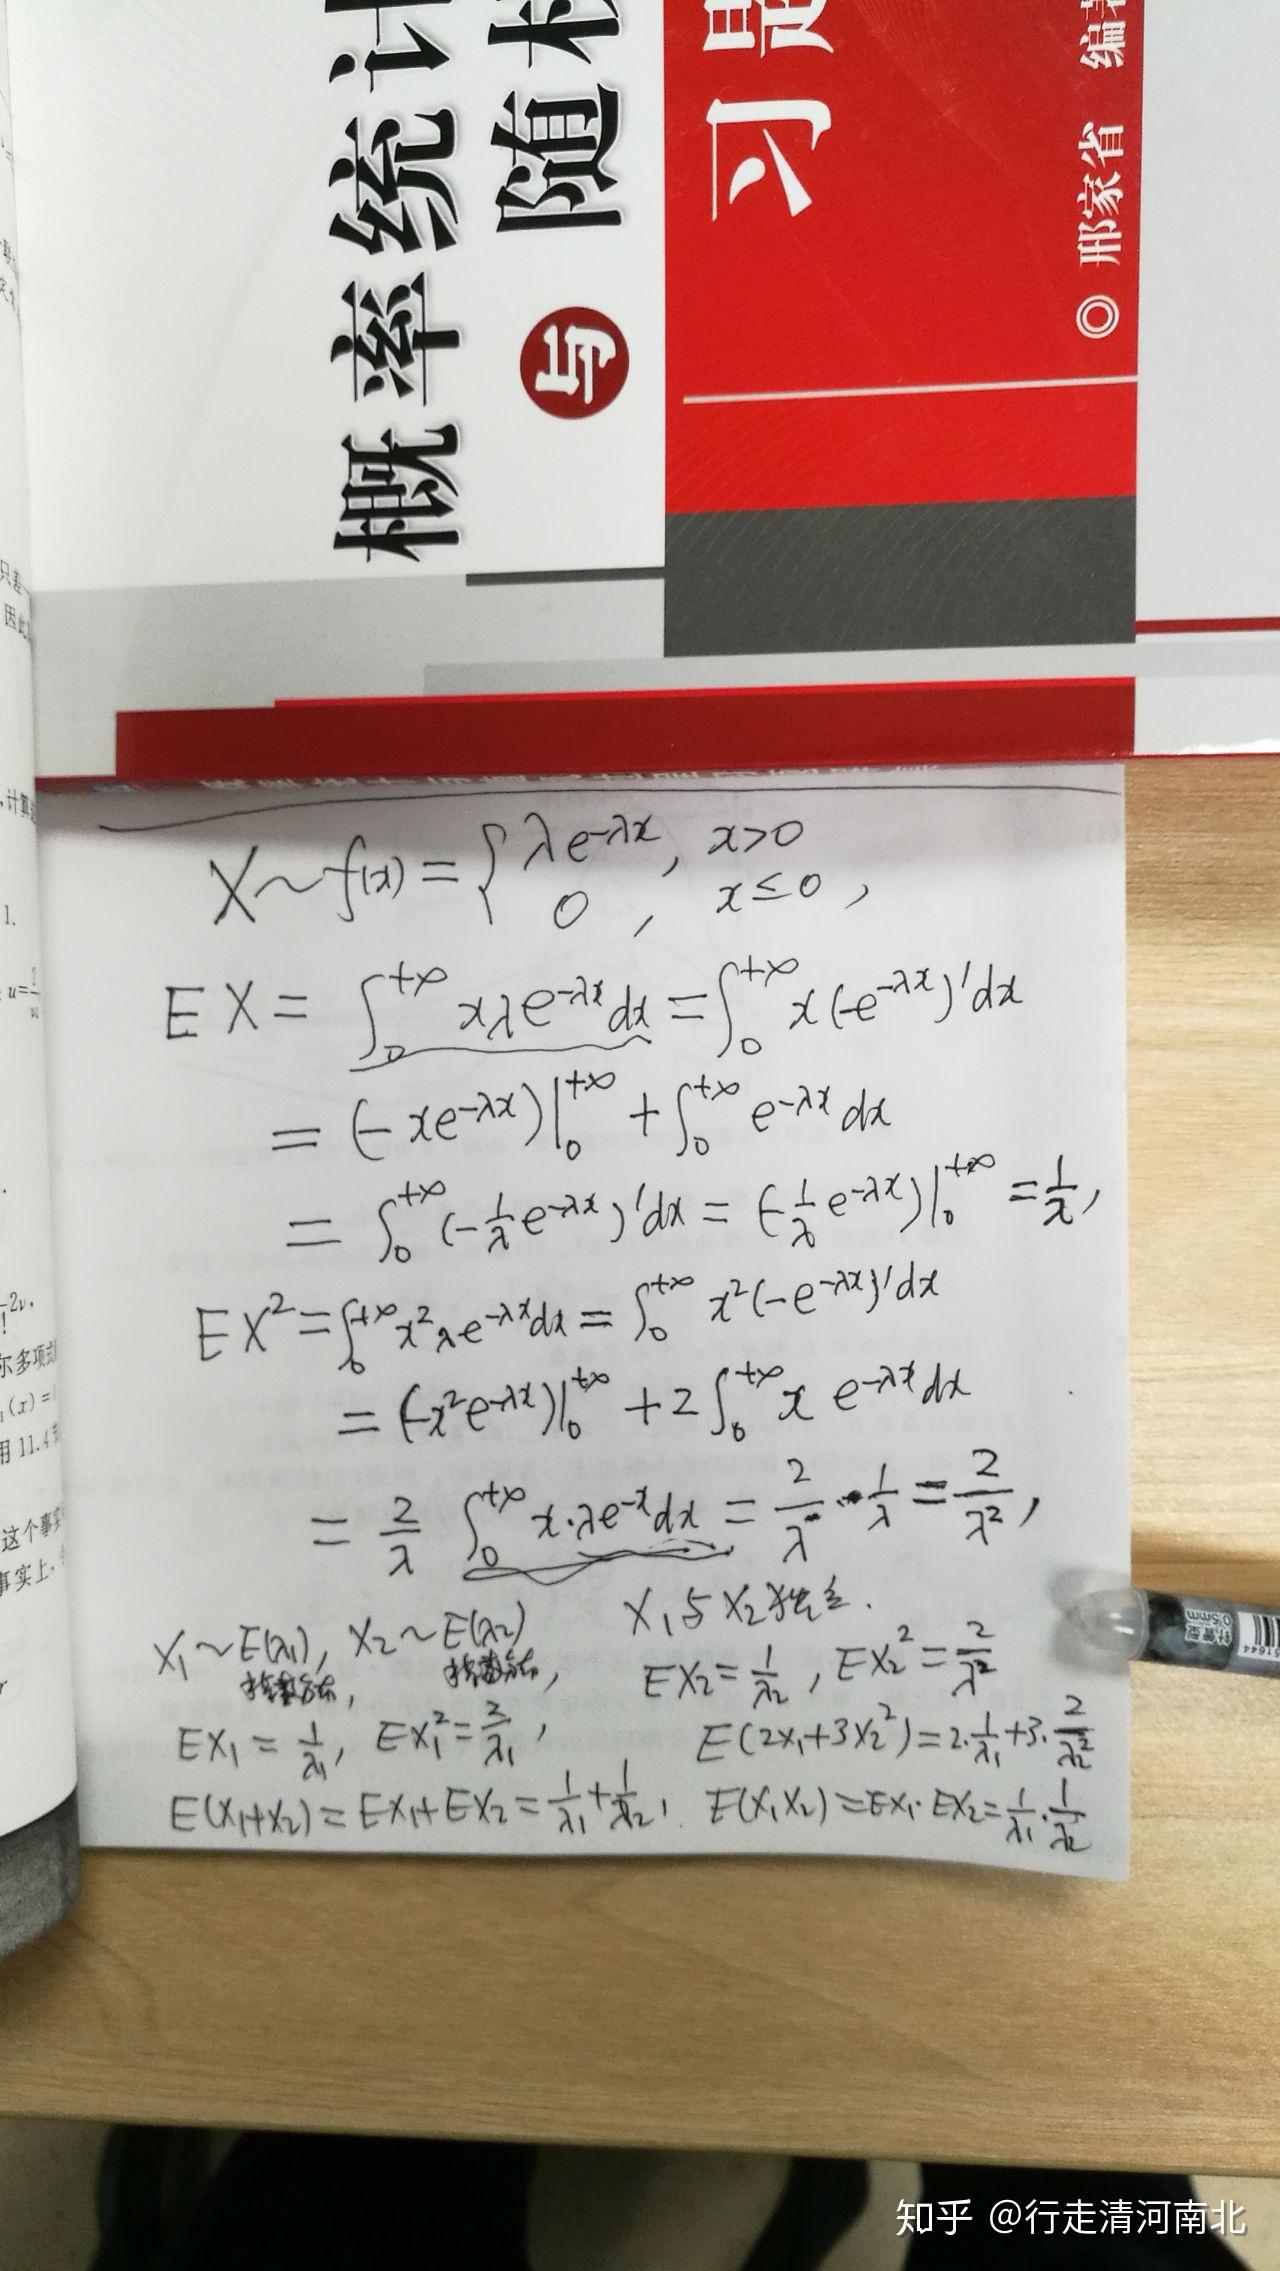 概率统计
与随机
习题
◎ 邢家省 编著
只差
因此
计算
1.
u=2
2v.
尔多项式
(x)=
用 11.4节
这个事实
事实上,
X~f(x)={λe^{-λx}, x>0
0, x≤0,
EX=∫_0^{+∞} xλe^{-λx}dx=∫_0^{+∞} x(-e^{-λx})'dx
=(-xe^{-λx})|_0^{+∞}+∫_0^{+∞} e^{-λx}dx
=∫_0^{+∞}(-1/λ e^{-λx})'dx=(-1/λ e^{-λx})|_0^{+∞}=1/λ,
EX²=∫_0^{+∞} x²λe^{-λx}dx=∫_0^{+∞} x²(-e^{-λx})'dx
=(-x²e^{-λx})|_0^{+∞}+2∫_0^{+∞} x e^{-λx}dx
=2/λ ∫_0^{+∞} x·λe^{-x}dx=2/λ·1/λ=2/λ²,
X₁~E(λ₁), X₂~E(λ₂) X₁与X₂独立.
指数分布, 指数分布,
EX₂=1/λ₂, EX₂²=2/λ²
EX₁=1/λ₁, EX₁²=2/λ₁, E(2X₁+3X₂²)=2·1/λ₁+3·2/λ₂²
E(X₁+X₂)=EX₁+EX₂=1/λ₁+1/λ₂, E(X₁X₂)=EX₁·EX₂=1/λ₁·1/λ₂
针管型
0.5mm
知乎 @行走清河南北